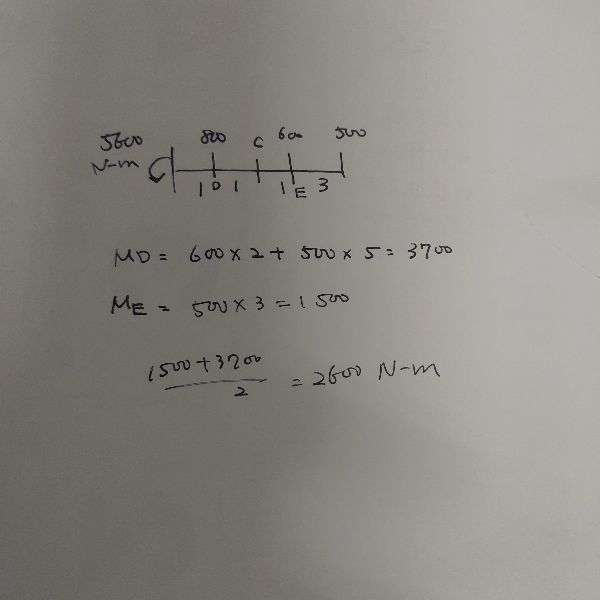 5600 800 C 600 500
N-m
1 D 1 1 E 3
MD = 600 x 2 + 500 x 5 = 3700
ME = 500 x 3 = 1500
1500 + 3700
2
= 2600 N-m